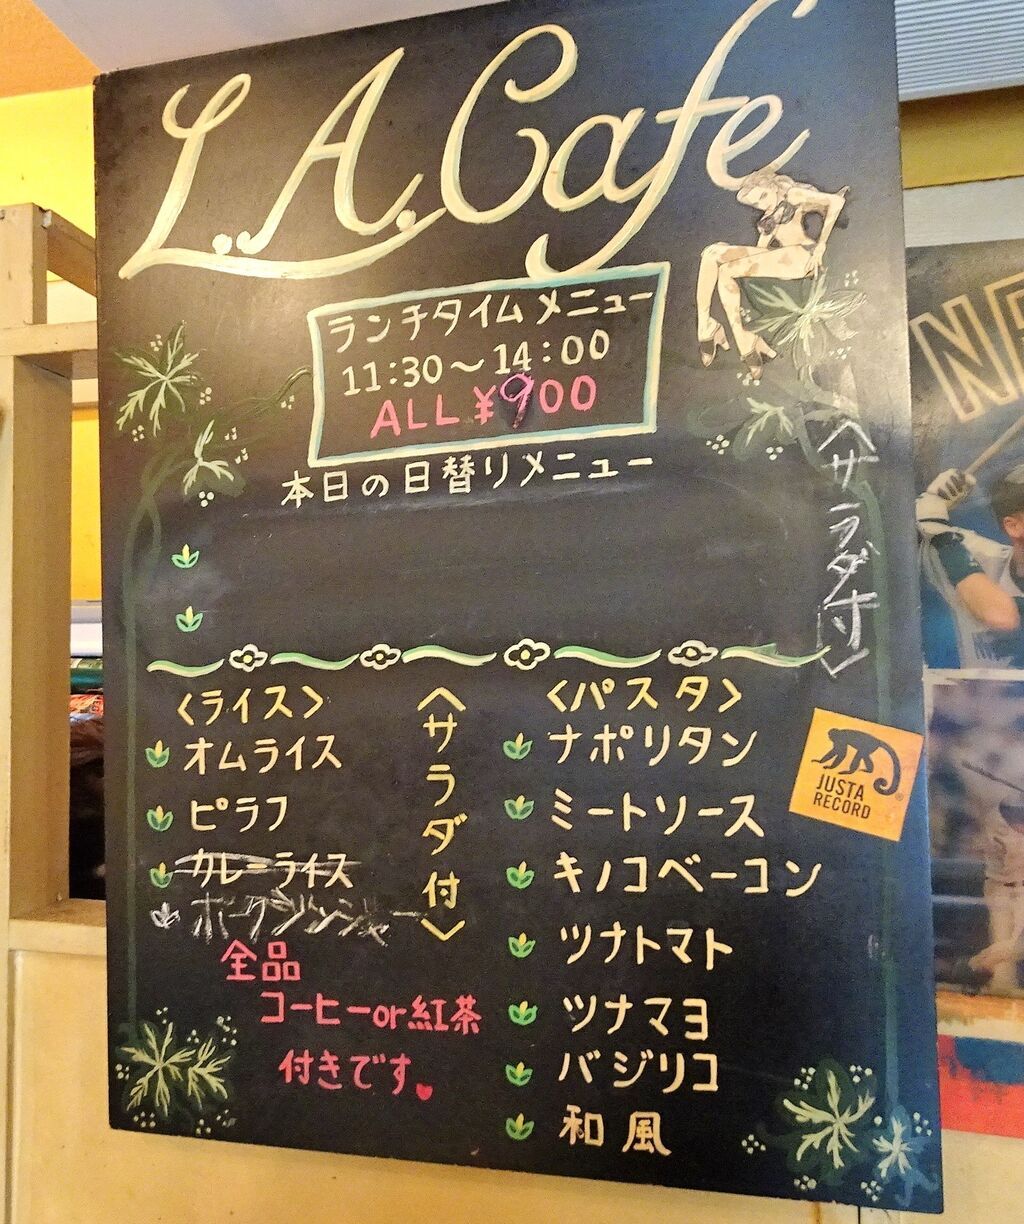 L.A.Cafe
ランチタイムメニュー
11:30〜14:00
ALL ¥900
本日の日替りメニュー
〈サラダ付〉
〈ライス〉
オムライス
ピラフ
カレーライス
ポークジンジャー
〈サラダ付〉
全品
コーヒーor紅茶
付きです。
〈パスタ〉
ナポリタン
ミートソース
キノコベーコン
ツナトマト
ツナマヨ
バジリコ
和風
JUSTA
RECORD